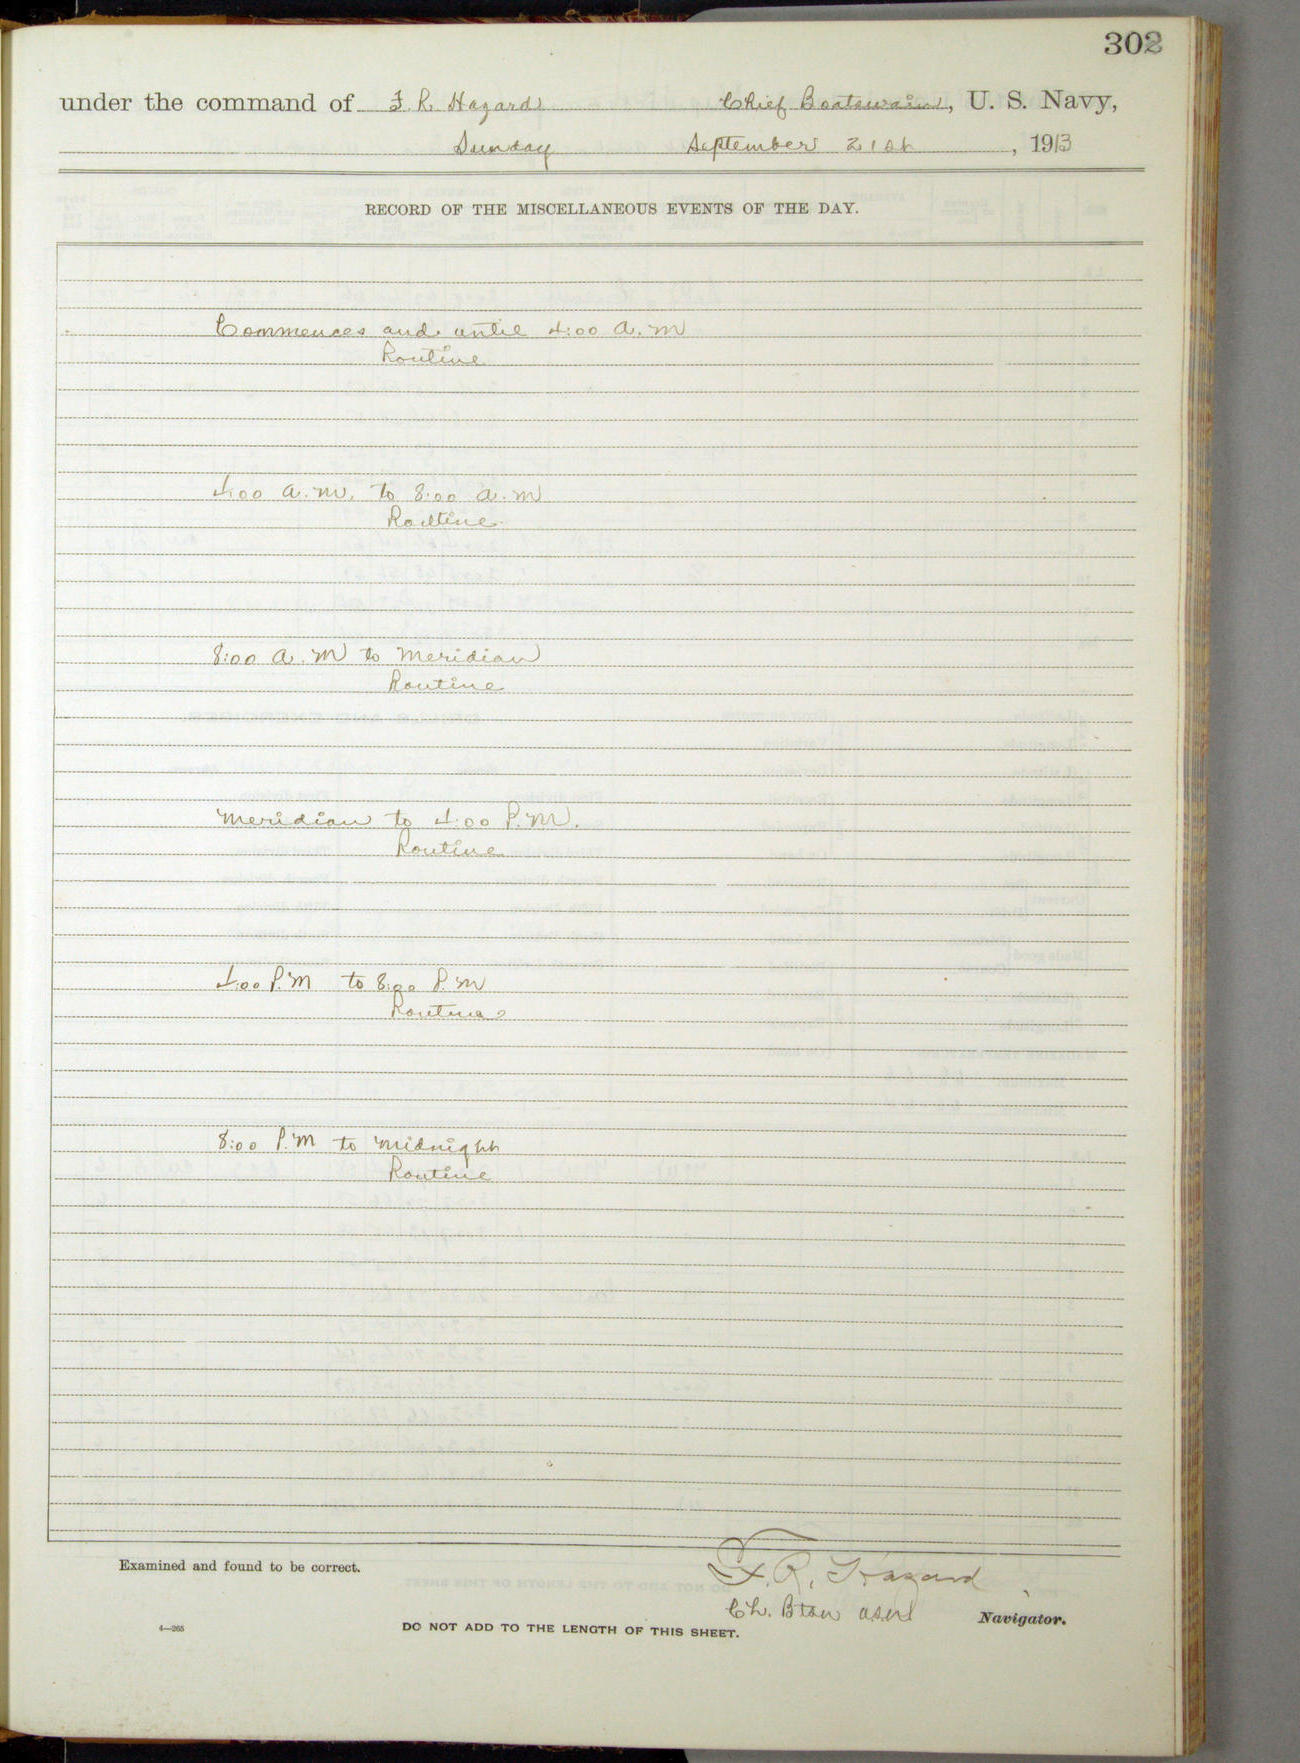 302
under the command of F. R. Hazard Chief Boatswain, U. S. Navy,
Sunday September 21st, 1913
RECORD OF THE MISCELLANEOUS EVENTS OF THE DAY.
Commences and until 4:00 A.M
Routine
4:00 A.M. to 8:00 A.M
Routine.
8:00 A.M to Meridian
Routine
Meridian to 4:00 P.M.
Routine
4:00 P.M to 8:00 P.M
Routine
8:00 P.M to Midnight
Routine
Examined and found to be correct.
F. R. Hazard
Ch. Btsw USN Navigator.
4—265
DO NOT ADD TO THE LENGTH OF THIS SHEET.